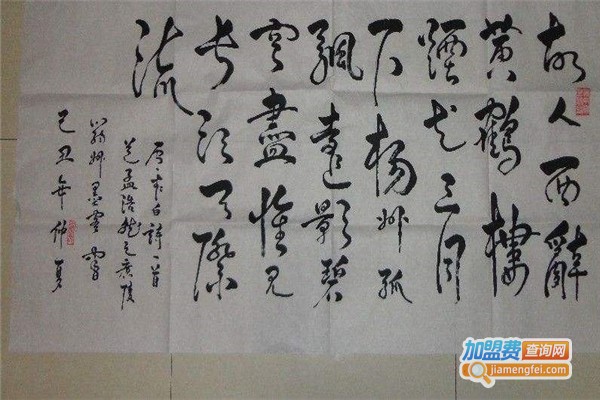 故人西辭
黄鶴樓
煙花三月
下楊州孤
遠影碧
空盡惟見
長江天際
流
李白詩一首
送孟浩然之廣陵
州墨
己丑年仲夏
加盟费查询网
jiamengfei.com